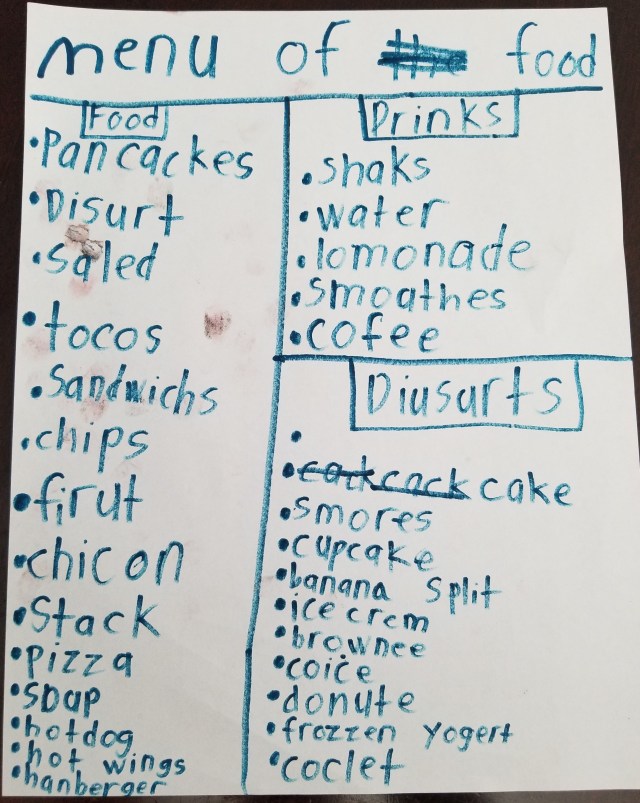 menu of food
Food
• Pancackes
• Disurt
• Saled
• tocos
• Sandwichs
• chips
• firut
• chicon
• Stack
• pizza
• soap
• hotdog
• hot wings
• hanberger
Drinks
• shaks
• water
• lomonade
• Smoathes
• cofee
Diusurts
•
• cack cack cake
• smores
• cupcake
• banana split
• ice crem
• brownee
• coice
• donute
• frozzen yogert
• coclet